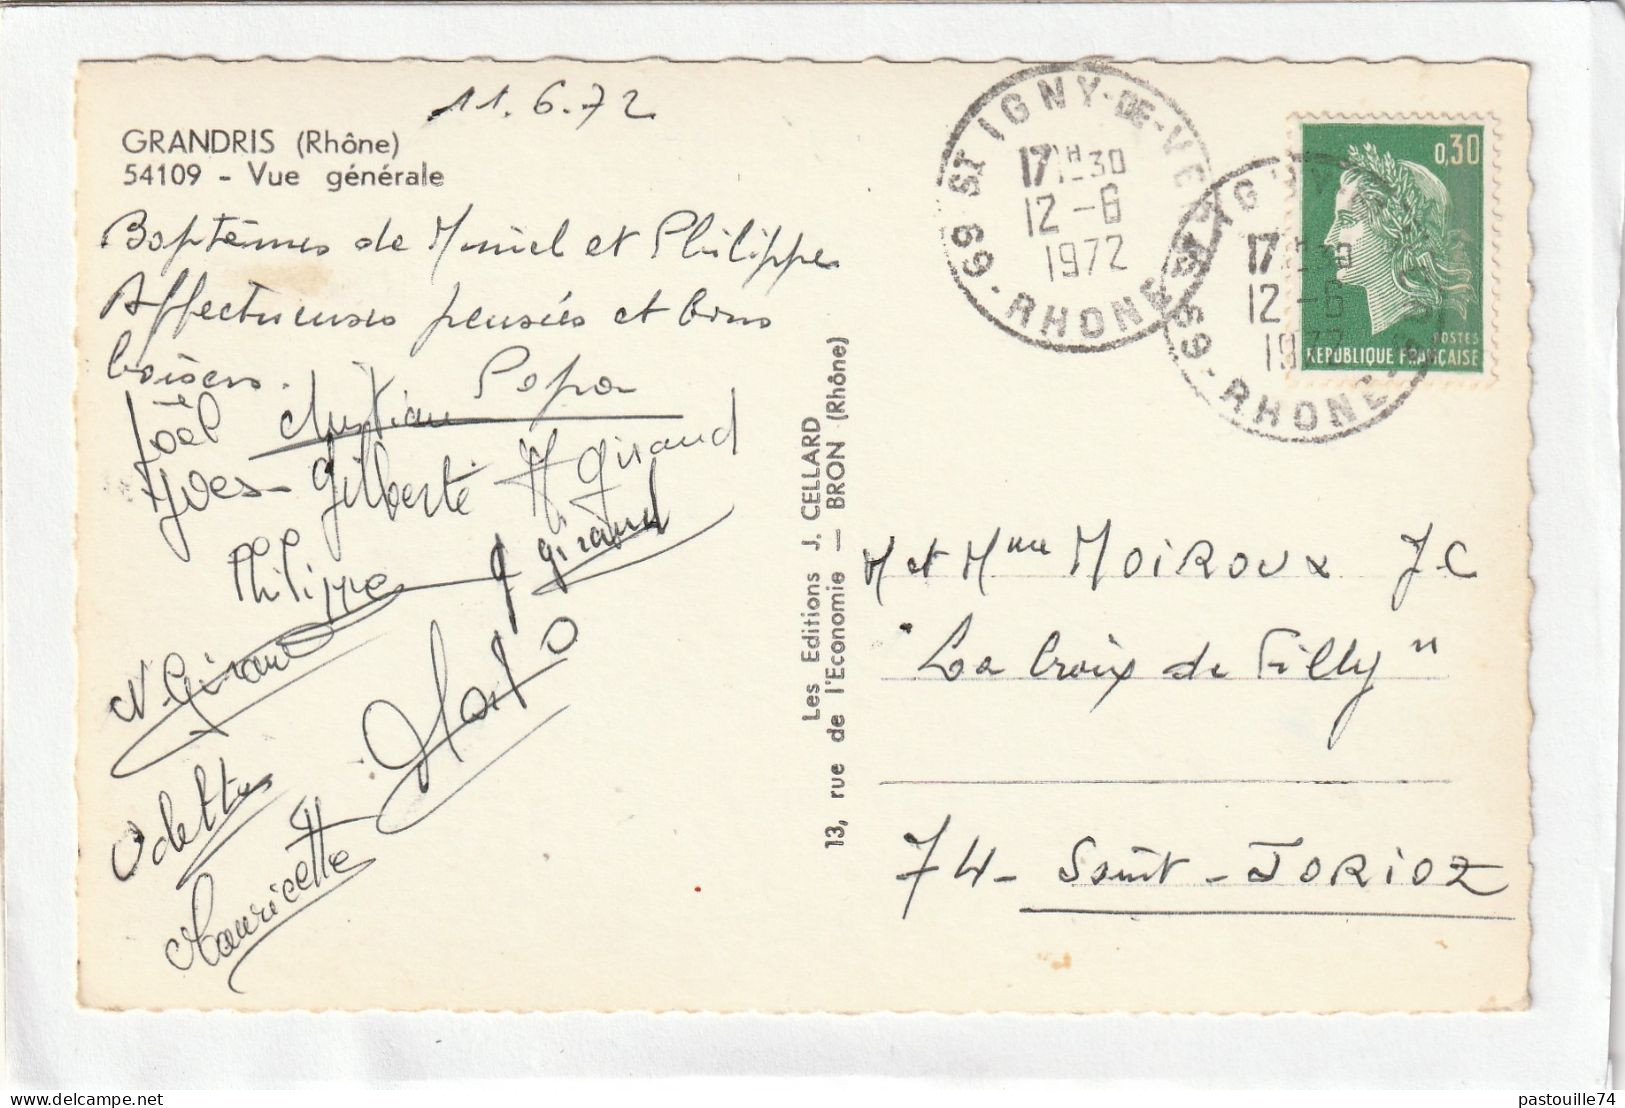 11.6.72
GRANDRIS (Rhône)
54109 - Vue générale
Baptêmes de Muriel et Philippe
Affectueuses pensées et bons
baisers.
Joël Christian Papa
Yves - Gilberte M Giraud
Philippe g giraud
N. Giraud
Odette
Mauricette
Les Editions J. CELLARD
13, rue de l'Economie — BRON (Rhône)
69 ST IGNY-DE-VERS
17H30
12-6
1972
69-RHONE
17H30
12-6
1972
69-RHONE
0,30
POSTES
REPUBLIQUE FRANÇAISE
M et Mme MOIROUX J.C
"La Croix de Filly"
74 - Saint-JORIOZ
pastouille74